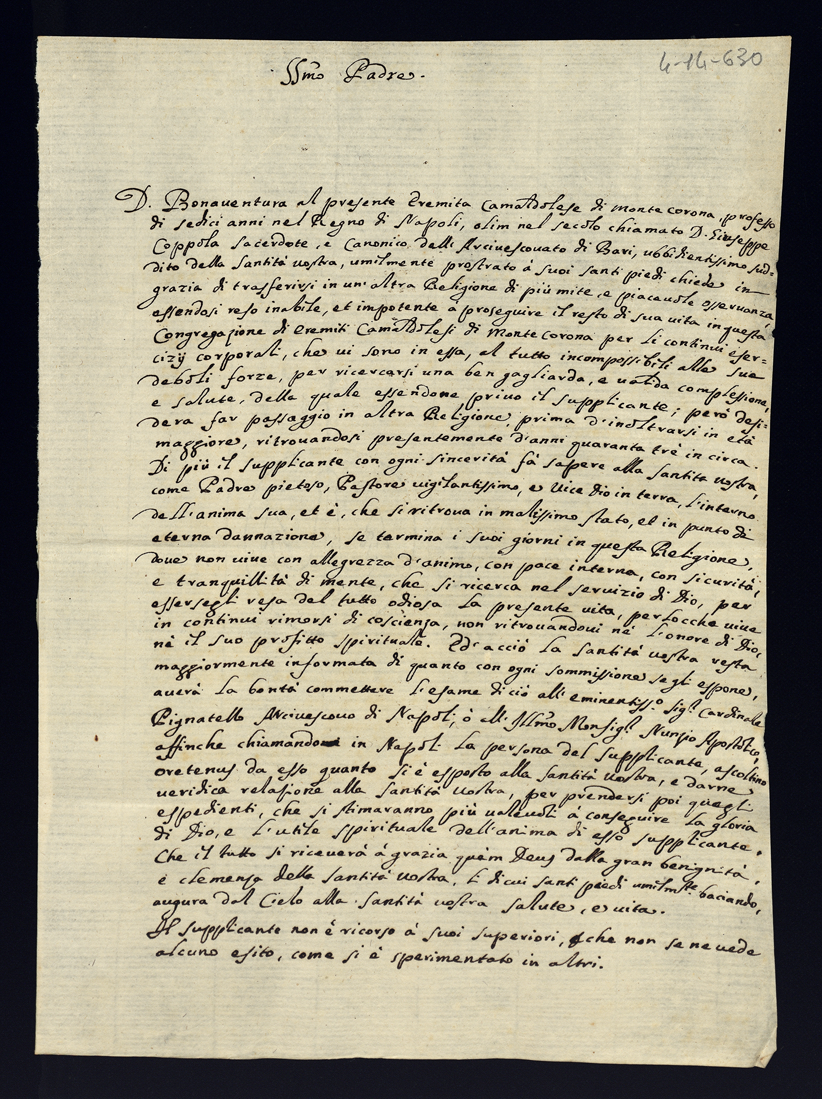 4-14-630
SSmo Padre.
D. Bonaventura al presente Eremita Camaldolese di Monte Corona, professo
di sedici anni nel Regno di Napoli, olim nel secolo chiamato D. Giuseppe
Coppola Sacerdote, e Canonico dell'Arcivescovato di Bari, ubbidientissimo sud=
dito della Santità vostra, umilmente prostrato à suoi santi piedi chiede in
grazia di trasferirsi in un'altra Religione di più mite, e piacevole osservanza,
essendosi reso inabile, et impotente à proseguire il resto di sua vita in questa
Congregazione di Eremiti Camaldolesi di Monte Corona per li continui eser=
cizij corporali, che vi sono in essa, al tutto incompossibili alle sue
deboli forze, per ricercarsi una ben gagliarda, e valida complessione,
e salute, della quale essendone privo il supplicante; però desi=
dera far passaggio in altra Religione, prima d'inoltrarsi in età
maggiore, ritrovandosi presentemente d'anni quaranta trè in circa.
Di più il supplicante con ogni sincerità fà sapere alla Santità vostra,
come Padre pietoso, Pastore vigilantissimo, e Vice Dio in terra, l'interno
dell'anima sua, et è, che si ritrova in malissimo stato, et in punto di
eterna dannazione, se termina i suoi giorni in questa Religione,
dove non vive con allegrezza d'animo, con pace interna, con sicurità,
e tranquillità di mente, che si ricerca nel servizio di Dio, per
essersegli resa del tutto odiosa la presente vita, perlocche vive
in continui rimorsi di coscienza, non ritrovandovi nè l'onore di Dio,
nè il suo profitto spirituale. Ed'acciò la Santità vostra resta
maggiormente informata di quanto con ogni sommissione segli espone,
averà la bontà commettere l'esame di ciò all'eminentisso. Sigr. Cardinale
Pignatello Arcivescovo di Napoli, ò all'Illmo. Monsigr. Nunzio Apostolico,
affinche chiamando in Napoli la persona del supplicante, ascoltino
oretenus da esso quanto si è esposto alla Santità vostra, e darne
veridica relazione alla Santità vostra, per prendersi poi quegli
espedienti, che si stimaranno più valevoli à conseguire la gloria
di Dio, e l'utile spirituale dell'anima di esso supplicante.
Che il tutto si riceverà à grazia quàm Deus dalla gran benignità,
e clemenza della Santità vostra, li di cui santi piedi umilmte. baciando,
augura dal Cielo alla Santità vostra salute, e vita.
Il supplicante non è ricorso à suoi superiori, che non se ne vede
alcuno esito, come si è sperimentato in altri.